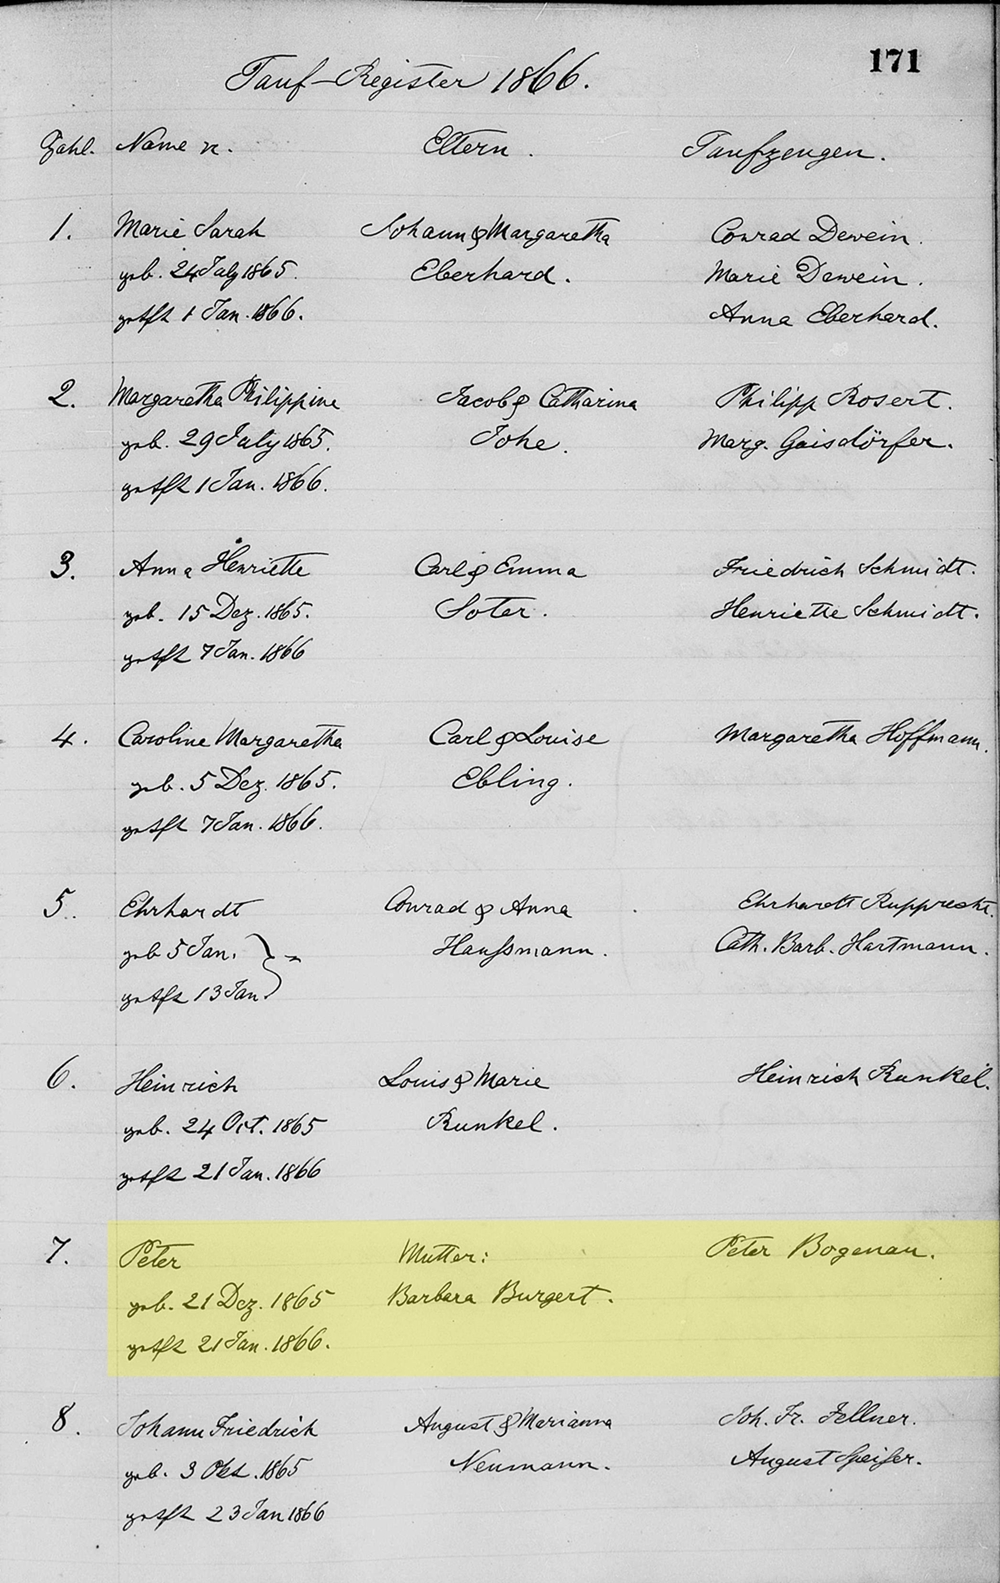 171
Tauf-Register 1866.
Zahl. Name n. Eltern. Taufzeugen.
1. Marie Sarah Johann & Margaretha Conrad Dewein.
geb. 24 July 1865. Eberhard. Marie Dewein.
getft 1 Jan. 1866. Anna Eberhard.
2. Margaretha Philippine Jacob & Catharina Philipp Rosert.
geb. 29 July 1865. Johe. Marg. Gaisdörfer.
getft 1 Jan. 1866.
3. Anna Henriette Carl & Emma Friedrich Schmidt.
geb. 15 Dez. 1865. Soter. Henriette Schmidt.
getft 7 Jan. 1866
4. Caroline Margaretha Carl & Louise Margaretha Hoffmann.
geb. 5 Dez. 1865. Ebling.
getft 7 Jan. 1866.
5. Ehrhardt Conrad & Anna Ehrhardt Rupprecht.
geb 5 Jan. Haußmann. Cath. Barb. Hartmann.
getft 13 Jan.
6. Heinrich Louis & Marie Heinrich Runkel.
geb. 24 Oct. 1865 Runkel.
getft 21 Jan. 1866
7. Peter Mutter: Peter Bogenau.
geb. 21 Dez. 1865 Barbara Burgert.
getft 21 Jan. 1866.
8. Johann Friedrich August & Marianna Joh. Fr. Fellner.
geb. 3 Okt. 1865 Neumann. August Speiser.
getft 23 Jan 1866